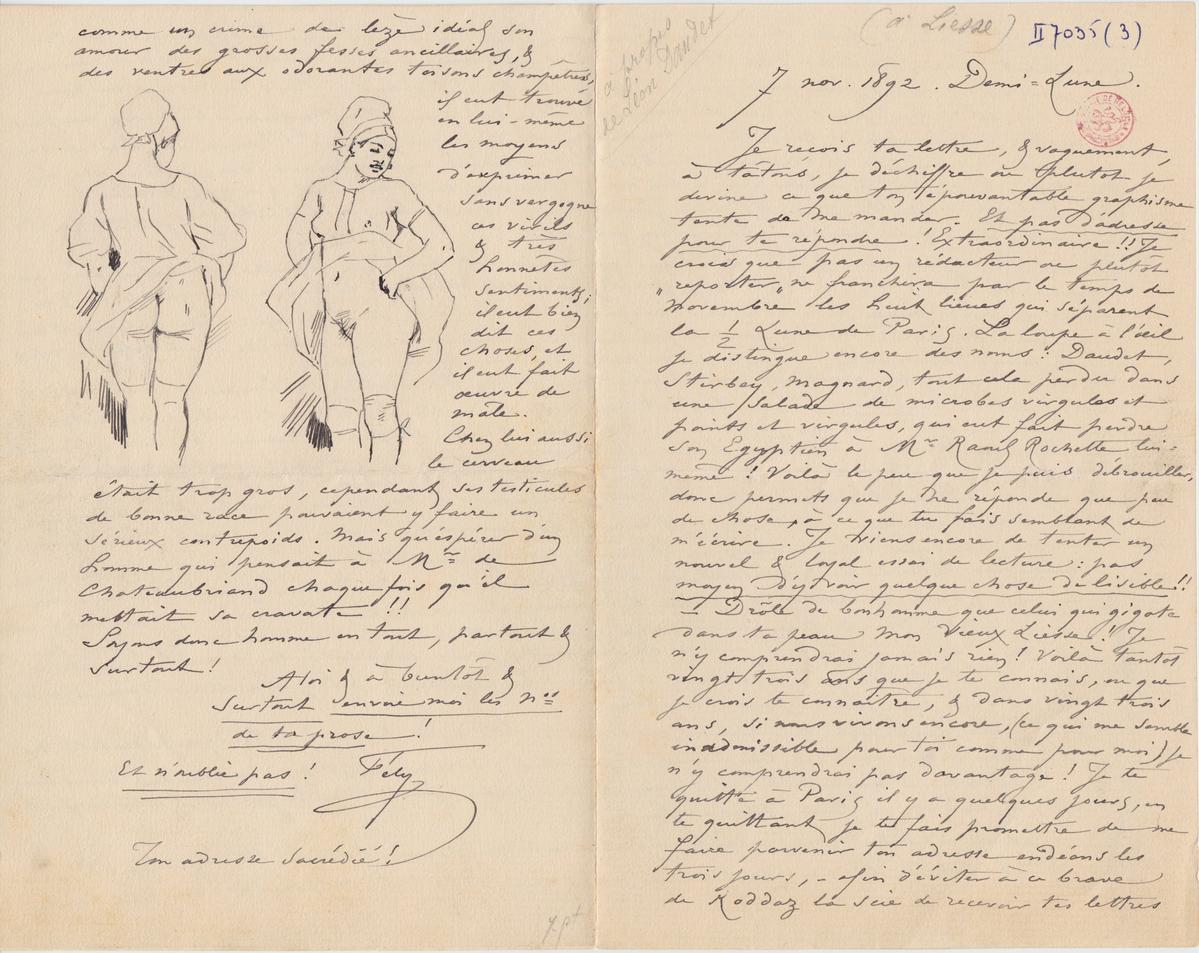 comme un crime de lèze idéal son
amour des grosses fesses ancillaires, &
des ventres aux odorantes toisons champêtres,
il eut trouvé
en lui-même
les moyens
d'exprimer
sans vergogne
ces virils
& très
honnêtes
sentiments;
il eut bien
dit ces
choses, et
il eut fait
œuvre de
mâle.
Chez lui aussi
le cerveau
était trop gros, cependant ses testicules
de bonne race pouvaient y faire un
sérieux contrepoids. Mais qu'éspérer d'un
homme qui pensait à Mme de
Chateaubriand chaque fois qu'il
mettait sa cravate !!
Soyons donc homme en tout, partout &
surtout !
A toi & à bientôt &
surtout envoie moi les nos
de ta prose !
Et n'oublie pas ! Fély
Ton adresse sacrédié !
à propos
de Léon Daudet
(à Liesse)
II 7035 (3)
7 nov. 1892. Demi=Lune.
Je reçois ta lettre, & vaguement,
à tâtons, je déchiffre ou plutôt je
devine ce que ton épouvantable graphisme
tente de me mander. Et pas d'adresse
pour te répondre ! Extraordinaire !! Je
crois que pas un rédacteur ou plutôt
"reporter" ne franchira par le temps de
Novembre les huit lieues qui séparent
la 1/2 Lune de Paris. La loupe à l'œil
je distingue encore des noms : Daudet,
Stirbey, Magnard, tout cela perdu dans
une salade de microbes virgules et
points et virgules, qui eut fait perdre
son Egyptien à Mr Raoul Rochette lui-
même ! Voilà le peu que je puis debrouiller,
donc permets que je ne réponde que peu
de chose, à ce que tu fais semblant de
m'écrire. Je viens encore de tenter un
nouvel & loyal essai de lecture : pas
moyen d'y voir quelque chose de lisible !!
– Drôle de bonhomme que celui qui gigote
dans ta peau mon vieux Liesse ! Je
n'y comprendrai jamais rien ! Voilà tantôt
vingt trois ans que je te connais, ou que
je crois te connaître, & dans vingt trois
ans, si nous vivons encore, (ce qui me semble
inadmissible pour toi comme pour moi) je
n'y comprendrai pas davantage ! Je te
quitte à Paris il y a quelques jours, en
te quittant je te fais promettre de me
faire parvenir ton adresse endéans les
trois jours, – afin d'éviter à ce brave
de Roddaz la scie de recevoir tes lettres